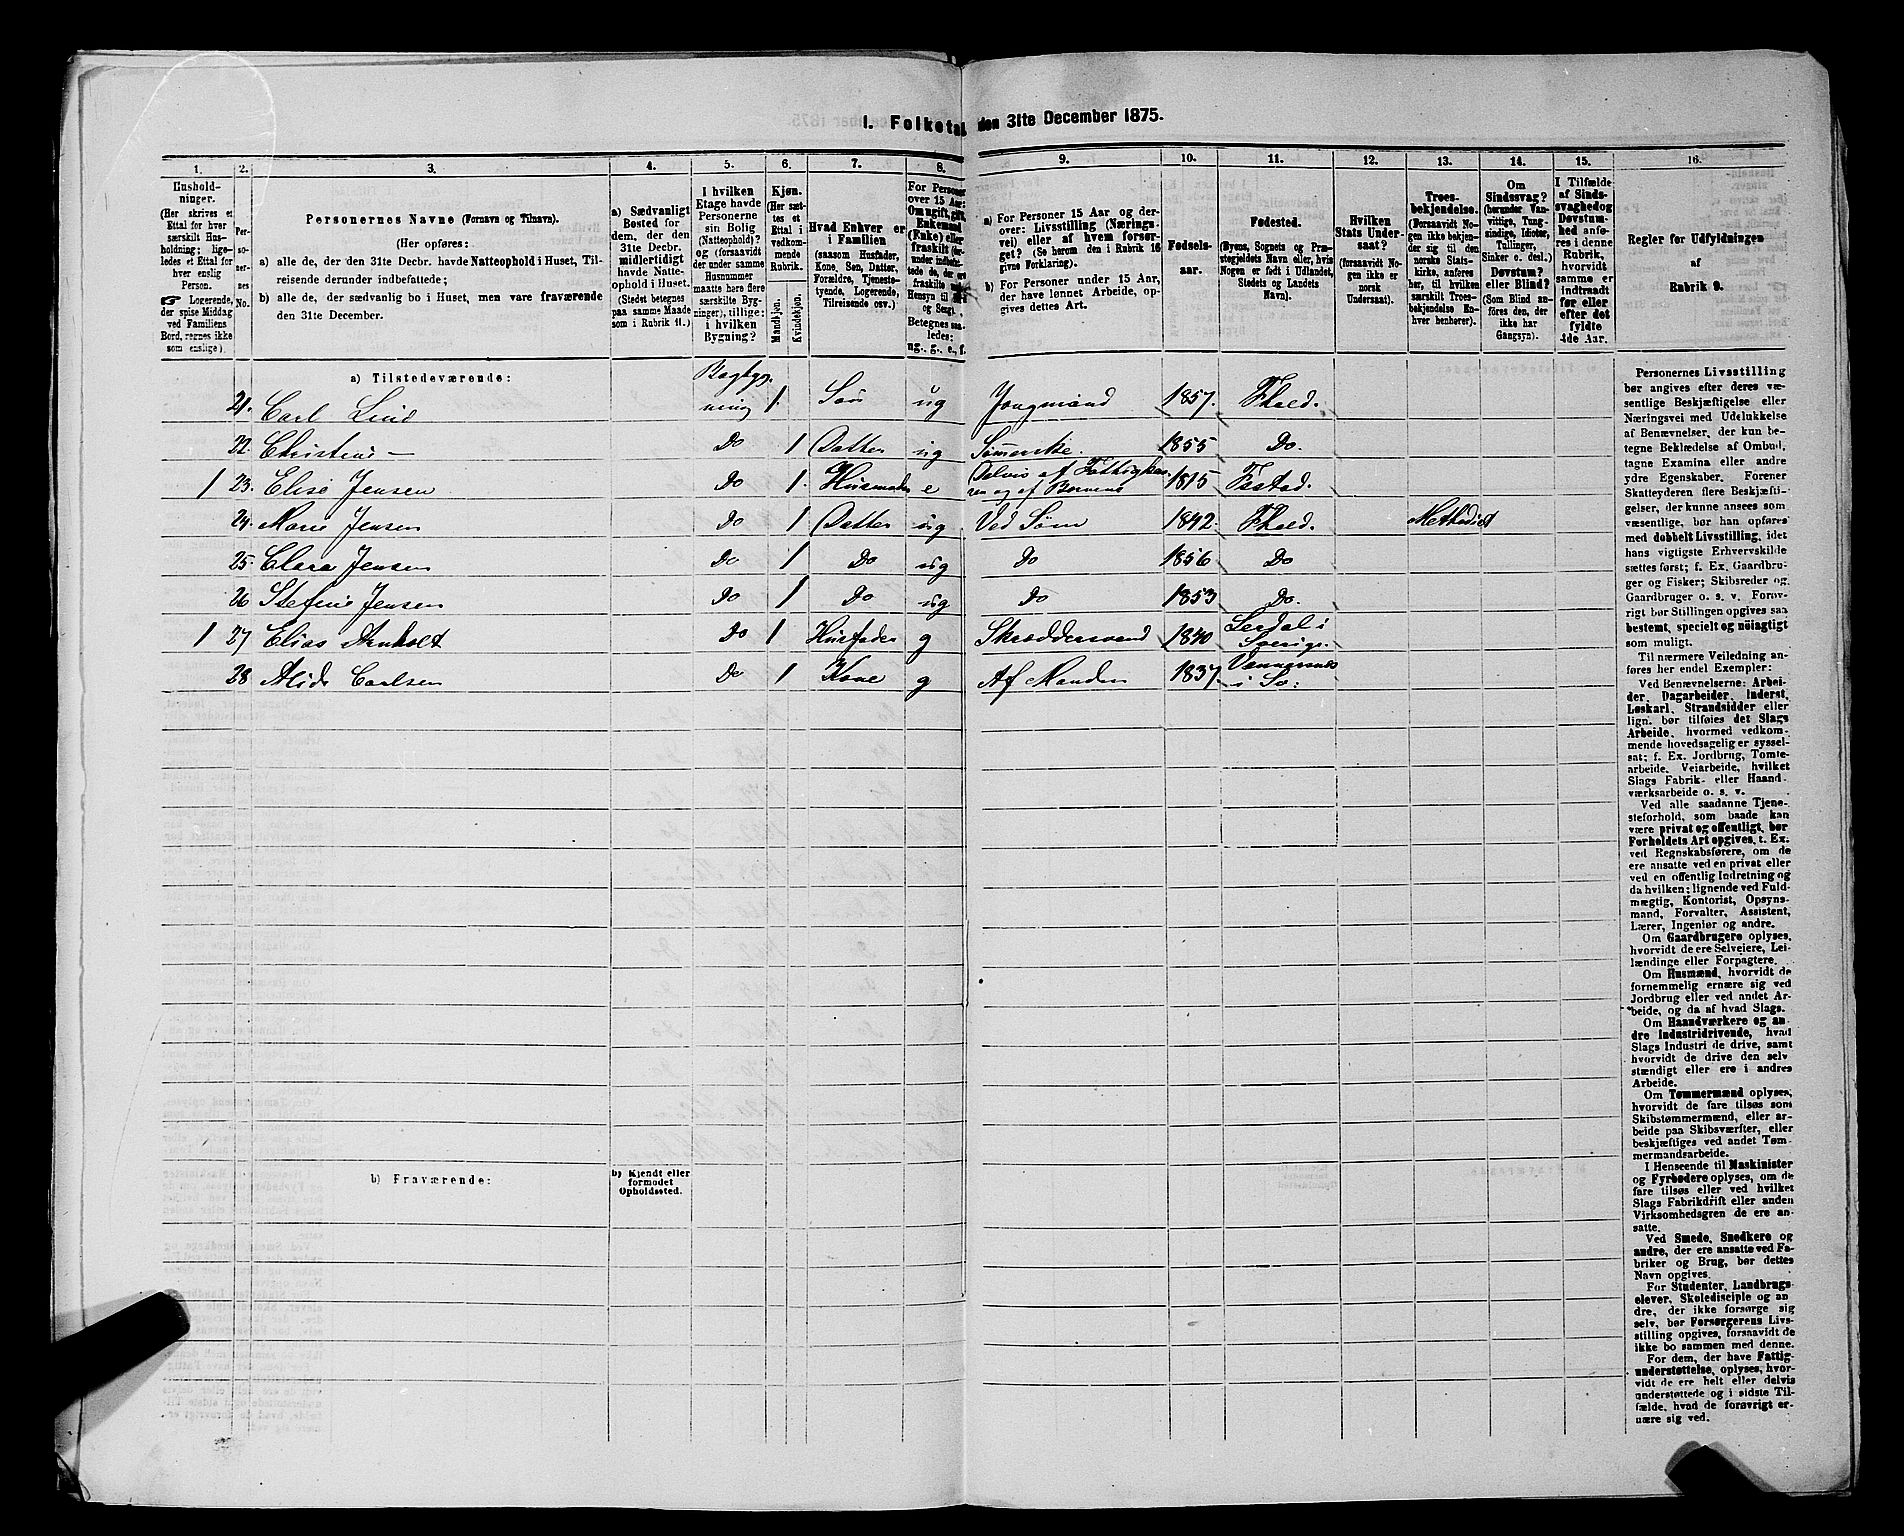 I. Folketal den 31te December 1875.
1. 2. 3. 4. 5. 6. 7. 8. 9. 10. 11. 12. 13. 14. 15. 16.
Hushold-
ninger.
(Her skrives et
Ettal for hver
særskilt Hus-
holdning; lige-
ledes et Ettal for
hver enslig
Person.
☞ Logerende,
der spise Middag
ved Familiens
Bord, regnes ikke
som enslige).
Per-
so-
ner-
nes
No.
Personernes Navne (Fornavn og Tilnavn).
(Her opføres:
a) alle de, der den 31te Decbr. havde Natteophold i Huset, Til-
reisende derunder indbefattede;
b) alle de, der sædvanlig bo i Huset, men vare fraværende
den 31te December.
a) Sædvanligt
Bosted for
dem, der den
31te Decbr.
midlertidigt
havde Natte-
ophold i Huset.
(Stedet betegnes
paa samme Maade
som i Rubrik 11.)
I hvilken
Etage havde
Personerne
sin Bolig
(Natteophold)?
(forsaavidt
der under samme
Husnummer
maatte høre flere
særskilte Byg-
ninger), tillige:
i hvilken
Bygning?
Kjøn.
(Her sæt-
tes et
Ettal i
vedkom-
mende
Rubrik.
Mandkjøn.
Kvindekjøn.
Hvad Enhver er
i Familien
(saasom Husfader,
Kone, Søn, Datter,
Forældre, Tjeneste-
tyende, Logerende,
Tilreisende osv.)
For Personer
over 15 Aar:
Om ugift, gift,
Enkemand
(Enke) eller
fraskilt
Betegnes saa-
ledes:
ug., g., e., f.
a) For Personer 15 Aar og der-
over: Livsstilling (Nærings-
vei) eller af hvem forsør-
get? (Se herom den i Rubrik 16
givne Forklaring).
b) For Personer under 15 Aar,
der have lønnet Arbeide, op-
gives dettes Art.
Fødsels-
aar.
Fødested.
(Byens, Sognets og Præ-
stegjeldets Navn eller, hvis
Nogen er født i Udlandet,
Stedets og Landets
Navn).
Hvilken
Stats Under-
saat?
(forsaavidt No-
gen ikke er
norsk
Undersaat).
Troes-
bekjendelse.
(Forsaavidt No-
gen ikke bekjen-
der sig til den
norske Stats-
kirke, anføres
her, til hvilken
særskilt Troes-
bekjendelse En-
hver henhører).
Om
Sindssvag?
(herunder Van-
vittige, Tung-
sindige, Idioter,
Tullinger,
Sinker o. desl.)
Døvstum?
eller Blind?
(Som Blind an-
føres den, der
ikke har
Gangsyn).
I Tilfælde
af Sinds-
svaghed og
Døvstum-
hed anfø-
res i denne
Rubrik,
hvorvidt
samme er
indtraadt
før eller
efter det
fyldte
4de Aar.
Regler for Udfyldningen
af
Rubrik 9.
a) Tilstedeværende:
21. Carl Lind Bagbyg-
ning 1. Søn ug Jungmand 1857. Fhald.
22. Christine — Do 1 Datter ug Sømerske. 1855 Do
1 23. Elise Jensen Do 1. Husmoder e Delvis af Fattigkas-
sen og af Børnene 1815 Fsstad.
24. Marie Jensen Do 1 Datter ug Ved Søm 1842. Fhald. Methodist
25. Clara Jensen Do 1 Do ug Do 1856 Do
26 Stefine Jensen Do 1 Do ug Do 1853 Do.
1 27 Elias Arnholt Do 1 Husfader g Skræddersvend 1840 Lerdal i
Sverige.
28 Alide Carlsen Do 1 Kone g Af Manden 1837
i Sv:
b) Fraværende:
b) Kjendt eller
formodet
Opholdssted.
Personernes Livsstilling
bør angives efter deres væ-
sentlige Beskjæftigelse eller
Næringsvei med Udelukkelse
af Benævnelser, der kun be-
tegne Beklædelse af Ombud,
tagne Examina eller andre
ydre Egenskaber. Forener
Skatteyderen flere Beskjæfti-
gelser, der kunne ansees som
væsentlige, bør han opføres
med dobbelt Livsstilling, idet
hans vigtigste Erhvervskilde
sættes først; f. Ex. Gaardbru-
ger og Fisker; Skibsreder og
Gaardbruger o. s. v. Forøv-
rigt bør Stillingen opgives saa
bestemt, specielt og nøiagtigt
som muligt.
Til nærmere Veiledning an-
føres her endel Exempler:
Ved Benævnelserne: Arbei-
der, Dagarbeider, Inderst,
Løskarl, Strandsidder eller
lign. bør tilføies det Slags
Arbeide, hvormed vedkom-
mende hovedsagelig er syssel-
sat; f. Ex. Jordbrug, Tomte-
arbeide, Veiarbeide, hvilket
Slags Fabrik- eller Haand-
værksarbeide o. s. v.
Ved alle saadanne Tjene-
steforhold, som baade kan
være privat og offentligt, bør
Forholdets Art opgives, t. Ex.
ved Regnskabsførere, om de
ere ansatte ved en privat eller
ved en offentlig Indretning og
da hvilken; lignende ved Fuld-
mægtig, Kontorist, Opsyns-
mand, Forvalter, Assistent,
Lærer, Ingeniør og andre.
Om Gaardbrugere oplyses,
hvorvidt de ere Selveiere, Lei-
lændinge eller Forpagtere.
Om Husmænd, hvorvidt de
fornemmelig ernære sig ved
Jordbrug eller ved andet Ar-
beide, og da af hvad Slags.
Om Haandværkere og an-
dre Industridrivende, hvad
Slags Industri de drive, samt
hvorvidt de drive den selv-
stændigt eller ere i andres
Arbeide.
Om Tømmermænd oplyses,
hvorvidt de fare tilsøs som
Skibstømmermænd, eller ar-
beide paa Skibsværfter, eller
beskjæftiges ved andet Tøm-
mermandsarbeide.
I Henseende til Maskinister
og Fyrbødere oplyses, om de
fare tilsøs eller ved hvilket
Slags Fabrikdrift eller anden
Virksomhedsgren de ere an-
satte.
Ved Smede, Snedkere og
andre, der ere ansatte ved Fa-
briker og Brug, bør dettes
Navn opgives.
For Studenter, Landbrugs-
elever, Skoledisciple og an-
dre, der ikke forsørge sig
selv, bør Forsørgerens Livs-
stilling opgives, forsaavidt de
ikke bo sammen med denne.
For dem, der have Fattig-
understøttelse, oplyses, hvor-
vidt de ere helt eller delvis
understøttede og i sidste Til-
fælde, hvad de forøvrigt er-
nære sig ved.